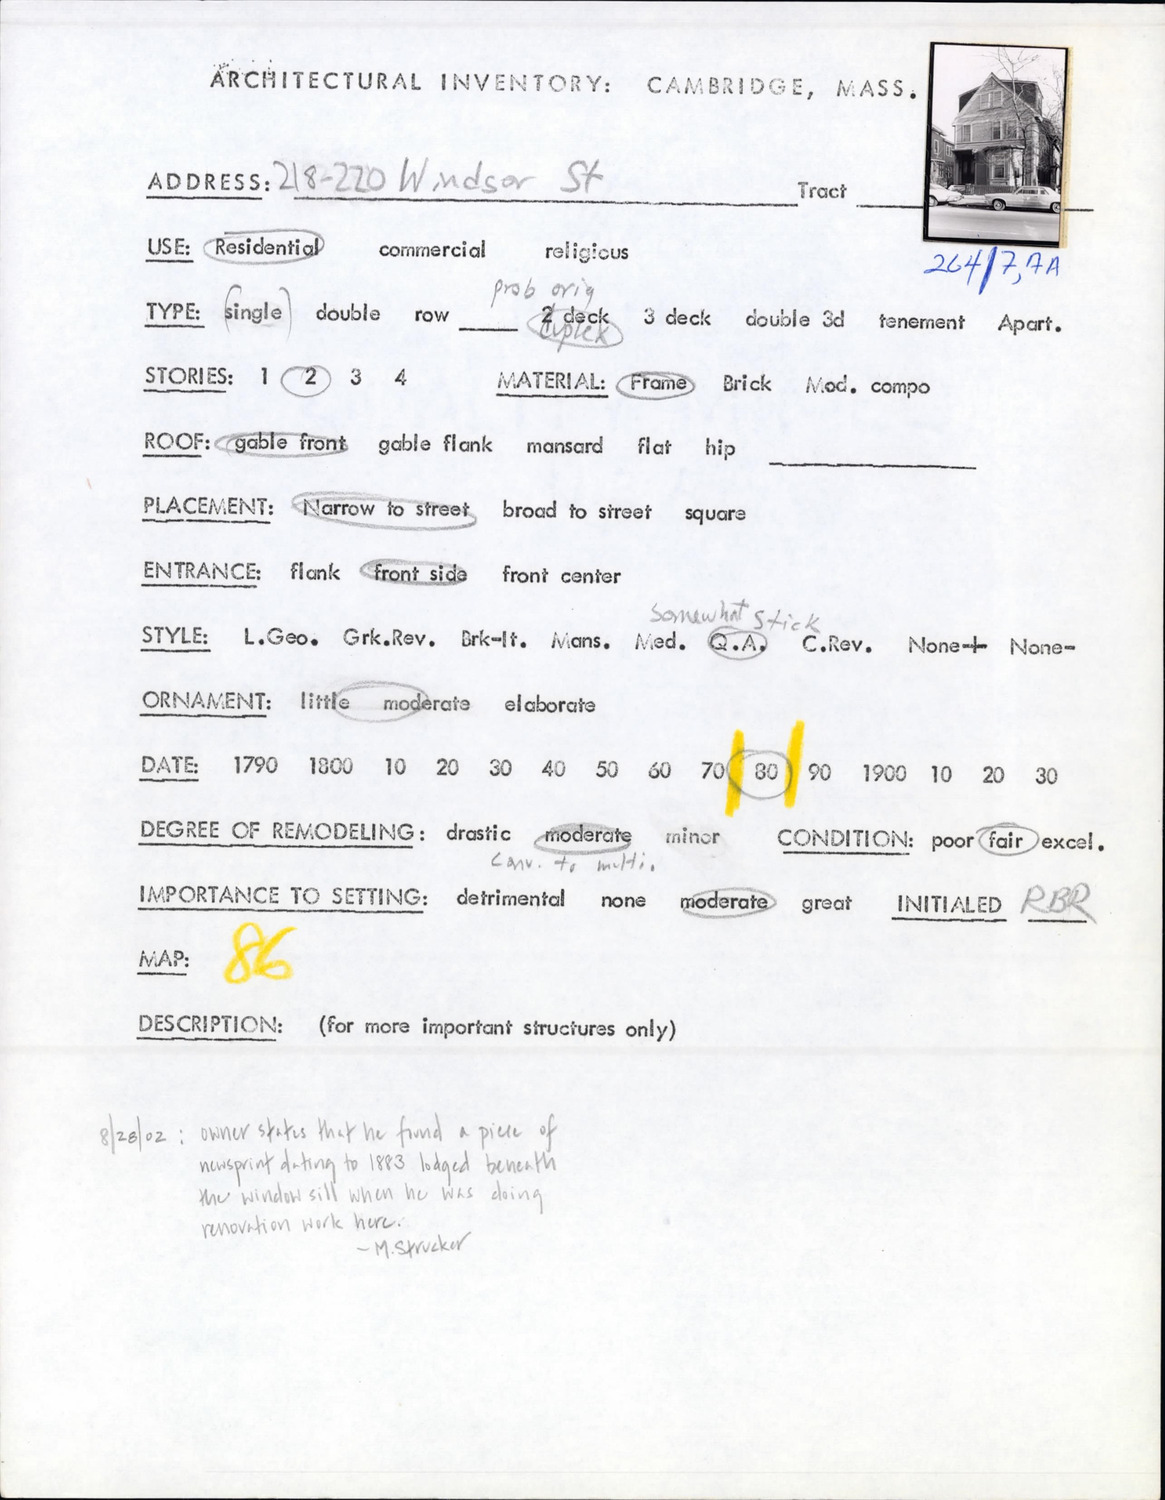 ARCHITECTURAL INVENTORY: CAMBRIDGE, MASS.
ADDRESS: 218-220 Windsor St Tract
264/7,7A
USE: Residential commercial religious
prob orig
TYPE: (single) double row 2 deck 3 deck double 3d tenement Apart.
duplex
STORIES: 1 2 3 4 MATERIAL: Frame Brick Mod. compo
ROOF: gable front gable flank mansard flat hip
PLACEMENT: Narrow to street broad to street square
ENTRANCE: flank front side front center
somewhat stick
STYLE: L.Geo. Grk.Rev. Brk-It. Mans. Med. Q.A. C.Rev. None+ None-
ORNAMENT: little moderate elaborate
DATE: 1790 1800 10 20 30 40 50 60 70 80 90 1900 10 20 30
DEGREE OF REMODELING: drastic moderate minor CONDITION: poor fair excel.
conv. to multi.
IMPORTANCE TO SETTING: detrimental none moderate great INITIALED RBR
MAP: 86
DESCRIPTION: (for more important structures only)
8/28/02: owner states that he found a piece of
newsprint dating to 1883 lodged beneath
the window sill when he was doing
renovation work here.
-M. Strucker